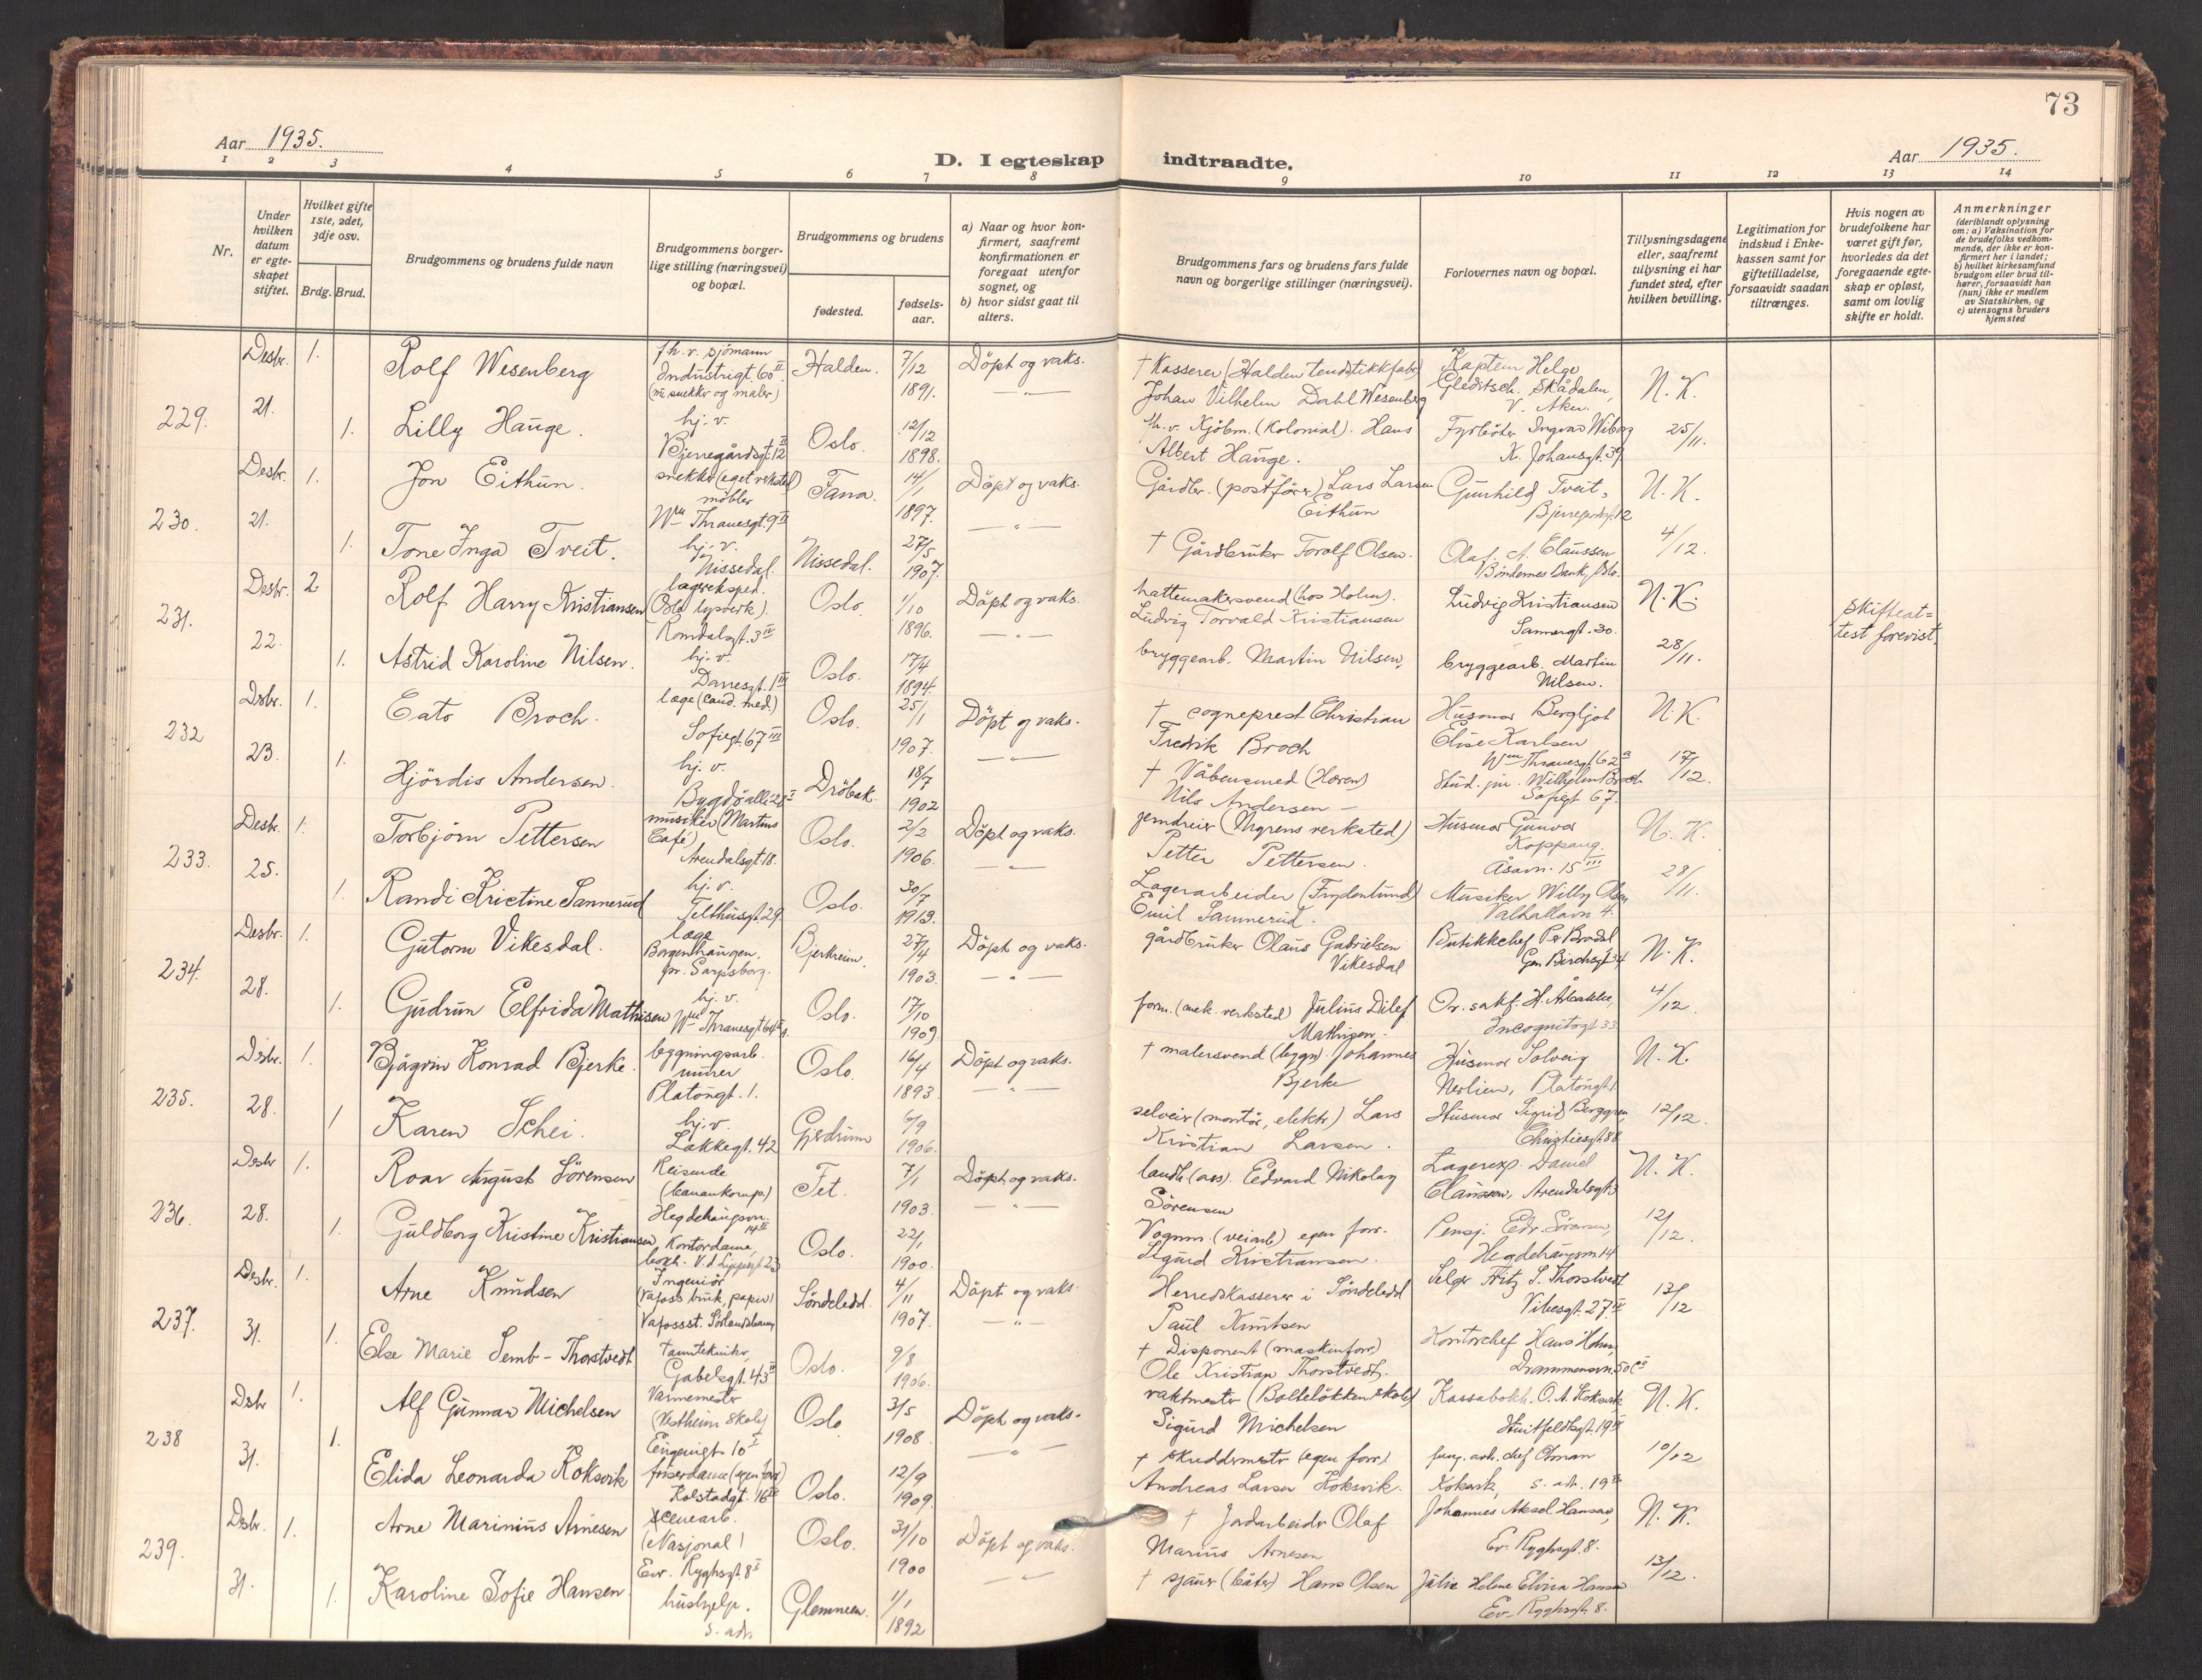 73
Aar 1935.
D. I egteskap indtraadte.
Aar 1935.
1 2 3 4 5 6 7 8 9 10 11 12 13 14
Nr.
Under hvilken datum er egteskapet stiftet.
Hvilket gifte 1ste, 2det, 3dje osv.
Brdg. Brud.
Brudgommens og brudens fulde navn
Brudgommens borgerlige stilling (næringsvei) og bopæl.
Brudgommens og brudens
fødested.
fødselsaar.
a) Naar og hvor konfirmert, saafremt konfirmationen er foregaat utenfor sognet, og
b) hvor sidst gaat til alters.
Brudgommens fars og brudens fars fulde navn og borgerlige stillinger (næringsvei).
Forlovernes navn og bopæl.
Tillysningsdagene eller, saafremt tillysning ei har fundet sted, efter hvilken bevilling.
Legitimation for indskud i Enkekassen samt for giftetilladelse, forsaavidt saadan tiltrænges.
Hvis nogen av brudefolkene har været gift før, hvorledes da det foregaaende egteskap er opløst, samt om lovlig skifte er holdt.
Anmerkninger
(deriblandt oplysning om: a) Vaksination for de brudefolks vedkommende, der ikke er konfirmert her i landet; b) hvilket kirkesamfund brudgom eller brud tilhører, forsaavidt han (hun) ikke er medlem av Statskirken, og c) utensogns bruders hjemsted
229. Desbr. 21.
1. Rolf Wesenberg
fh. v. sjömann
Industrigt. 60 II
(m. snekker og maler)
Halden. 7/12 1891.
Döpt og vaks.
† Kasserer (Halden tendstikkfabr)
Johan Vilhelm Dahl Wesenberg
Kaptein Helge
Gleditsch. Skådalen,
V. Aker.
N. K.
1. Lilly Hauge.
hj. v.
Bjerregårdsgt. 12 II
Oslo. 12/12 1898.
— " —
fh. v. Kjöbm. (Kolonial). Hans
Albert Hauge.
Fyrböter Ingvar Wiborg
K. Johansgt. 39
25/11.
230. Desbr. 21.
1. Jon Eithun.
snekker (eget verksted)
möbler
Wm Thranesgt. 9 II
Tana. 14/1 1897.
Döpt og vaks.
Gårdbr. (postförer) Lars Larsen
Eithun
Gunhild Tveit,
Bjerregårdsgt. 12
N. K.
1. Tone Inga Tveit.
hj. v.
Nissedal.
Nissedal. 27/5 1907.
— " —
† Gårdbruker Torolf Olsen.
Olaf A. Claussen
Böndernes Bank, Oslo.
4/12.
231. Desbr. 22.
2 Rolf Harry Kristiansen
lagereksped.
(Oslo lysverk).
Romdalsgt. 3 IV
Oslo. 1/10 1896.
Döpt og vaks.
hattemakersvend (hos Holm).
Ludvig Torvald Kristiansen
Ludvig Kristiansen
Sannergt. 30.
N. K.
skifteat=
test forevist.
1. Astrid Karoline Nilsen.
hj. v.
Darresgt. 1 III
Oslo. 17/4 1894.
— " —
bryggearb. Martin Nilsen,
bryggearb. Martin
Nilsen.
28/11.
232 Dsbr. 23.
1. Cato Broch.
læge (cand. med.)
Sofiegt. 67 III
Oslo. 25/1 1907.
Döpt og vaks.
† sogneprest Christian
Fredrik Broch
Husmor Bergljot
Elise Karlsen
Wm Thranesgt 62 a
N. K.
1. Hjördis Andersen.
hj. v.
Bygdö allé 28 I
Dröbak. 18/7 1902
— " —
† Våbensmed (Hæren)
Nils Andersen —
Stud. jur. Wilhelm Broch
Sofiegt 67.
17/12.
233. Desbr. 25.
1. Torbjörn Pettersen
musiker (Martins
Café)
Arendalsgt. 18.
Oslo. 2/2 1906.
Döpt og vaks.
jerndreier (Myrens verksted)
Petter Pettersen.
Husmor Gunvor
Koppang.
Åsavn. 15 III
N. K.
1. Randi Kristine Sannerud
hj. v.
Telthusgt. 29
Oslo. 30/7 1913.
— " —
Lagerarbeider (Frydenlund)
Emil Sannerud.
Musiker Willy Olsen
Valhallavn 4.
28/11.
234. Desbr. 28.
1. Gutorm Vikesdal.
læge
Borgenhaugen,
pr. Sarpsborg.
Bjerkreim. 27/4 1903.
Döpt og vaks.
gårdbruker Olaus Gabrielsen
Vikesdal
Butikkchef Per Brodal
Gen. Birchsgt. 34
N. K.
1. Gudrun Elfrida Mathisen
hj. v.
Wm Thranesgt. 64
Oslo. 17/10 1909.
— " —
form. (mek. verksted) Julius Ditlef
Mathisen.
Or. sakf. H.
Incognitogt 33
4/12.
235. Dsbr. 28.
1. Bjågvin Konrad Bjerke.
bygningsarb.
murer
Platöusgt. 1.
Oslo. 16/4 1893.
Döpt og vaks.
† malersvend (bygn). Johannes
Bjerke
Husmor Solveig
Nerlien, Platöusgt 1
N. K.
1 Karen Schei.
hj. v.
Lakkegt. 42
Gjerdrum 6/9 1906.
— " —
selveier (montör, elektr) Lars
Kristian Larsen.
Husmor Sigrid Berggren,
Christiesgt. 88
12/12.
236. Desbr 28.
1. Roar August Sörensen
Reisende
(banankomp.)
Hegdehaugsvn.
14 II
Fet. 7/1 1903.
Döpt og vaks.
landh. (ass). Edvard Nikolay
Sörensen
Lagerexp. Daniel
Clausen, Arendalsgt 3
N. K.
1. Guldborg Kristine Kristiansen
Kontordame,
bokh. V. d Lippesgt 23
Oslo. 22/1 1900.
— " —
Vognm. (veiarb) egen forr.
Sigurd Kristiansen.
Pensj. Edv. Sörensen,
Hegdehaugsvn 14
12/12.
237. Desbr. 31.
1. Arne Knudsen
Ingeniör
(Vafoss bruk, papir)
Vafossst. Sörlandsbanen
Söndeled. 4/11 1907.
Döpt og vaks
Herredskasserer i Söndeled
Paul Knutsen
Selger Fritz S. Thorstvedt
Vibesgt. 27 IV
13/12
1. Else Marie Semb-Thorstvedt
tanntekniker,
Gabelsgt. 43 II
Oslo. 9/8 1906.
— " —
† Disponent (maskinforr.)
Ole Kristian Thorstvedt.
Kontorchef Hans Holm,
Drammensvn. 50 c
238 Dsbr 31.
1. Alf Gunnar Michelsen
Varmemester
(Vestheim Skole)
Eugenigt. 10 I
Oslo 3/5 1908.
Döpt og vaks.
vaktmester (Bolteløkken skole)
Sigurd Michelsen
Kassabokh. O. A. Koksvik
Huitfeldtsgt. 19
N. K.
1. Elida Leonarda Koksvik
frisördame (egen forr)
Kolstadgt. 16
Oslo. 12/9 1909.
— " —
† skreddermester (egen forr.)
Andreas Larsen Koksvik.
Koksvik, s. adr. 19
10/12
239. Desbr. 31.
1. Arne Marinius Arnesen
scenearb.
(Nasjonal)
Ev. Ryghsgt. 8 I
Oslo. 31/10 1900
Döpt og vaks.
† Jordarbeider Olaf
Marius Arnesen
Johannes Aksel Hansen,
Ev. Ryghsgt. 8.
N. K.
1. Karoline Sofie Hansen.
hushjelp.
s. adr.
Glemmen. 1/1 1892
— " —
† sjauer (båter) Hans Olsen
Julie Helene Elvira Hansen
Ev. Ryghsgt. 8.
13/12.